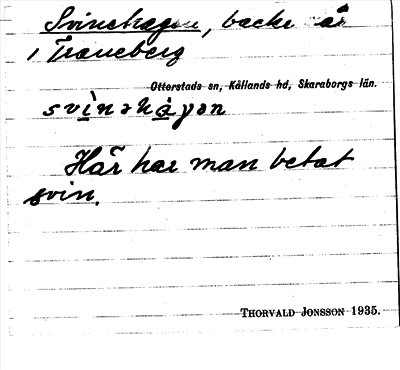 Svinehagen, backe är
i Traneberg
Otterstads sn, Kållands hd, Skaraborgs län.
svìnəhàgən
Här har man betat
svin.
THORVALD JONSSON 1935.